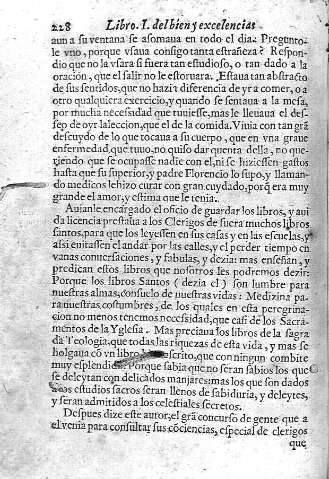 228 Libro. I. del bien y excelencias
aun a su ventana se asomaua en todo el dia. Pregunto-
le vno, porque vsaua consigo tanta estrañeza? Respon-
dio que no la vsara si fuera tan estudioso, o tan dado a la
oración, que el salir no le estoruara. Estaua tan abstracto
de sus sentidos, que no hazia diferencia de yr a comer, o a
otro qualquiera exercicio, y quando se sentaua a la mesa,
por mucha necessidad que tuuiesse, mas le lleuaua el des-
seo de oyr la leccion, que el de la comida. Viuia con tan grã
descuydo de lo que tocaua a su cuerpo, que en vna graue
enfermedad, que tuuo, no quiso dar quenta della, no que-
riendo que se ocupasse nadie con el, ni se hiziessen gastos
hasta que su superior, y padre Florencio lo supo, y llaman-
do medicos le hizo curar con gran cuydado, porq̃ era muy
grande el amor, y estima que le tenia.
Auianle encargado el oficio de guardar los libros, y aui
da licencia prestaua a los Clerigos de fuera muchos libros
santos, para que los leyessen en sus casas y en las escuelas, y
assi euitassen el andar por las calles, y el perder tiempo en
vanas conuersaciones, y fabulas, y dezia: mas enseñan, y
predican estos libros que nosotros les podremos dezir:
Porque los libros Santos (dezia el) son lumbre para
nuestras almas, consuelo de nuestras vidas: Medizina pa
ra nuestras costumbres, de los quales en esta peregrina-
cion no menos tenemos necessidad, que casi de los Sacra-
mentos de la Yglesia. Mas preciaua los libros de la sagra
da Teologia, que todas las riquezas de esta vida, y mas se
holgaua cõ vn libro escrito, que con ningun combite
muy esplendido. Porque sabia que no seran sabios los que
se deleytan con delicados manjares: mas los que son dados
a los estudios sacros seran llenos de sabiduria, y deleytes,
y seran admitidos a los celestiales secretos.
Despues dize este autor, el grã concurso de gente que a
el venia para consultar sus cõciencias, especial de clerigos
que